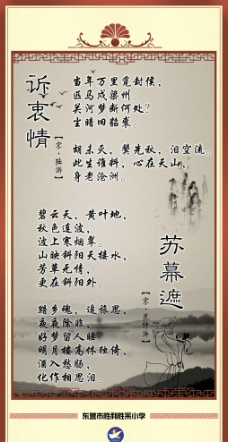 诉衷情
【宋·陆游】
当年万里觅封侯，
匹马戍梁州
关河梦断何处？
尘暗旧貂裘。
胡未灭，鬓先秋，泪空流。
此生谁料，心在天山，
身老沧洲。
苏幕遮
【宋·范仲淹】
碧云天，黄叶地，
秋色连波，
波上寒烟翠。
山映斜阳天接水，
芳草无情，
更在斜阳外。
黯乡魂，追旅思，
夜夜除非，
好梦留人睡。
明月楼高休独倚，
酒入愁肠，
化作相思泪。
东营市胜利胜东小学